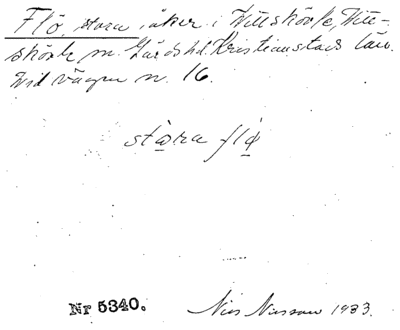 Flö, stora, åker i Vittskövle, Vitt-
skövle sn. Gärds hd. Kristianstads län.
Vid vägen n. 16.
stora flö
Nr 5340.
Nils Nilsson 1933.